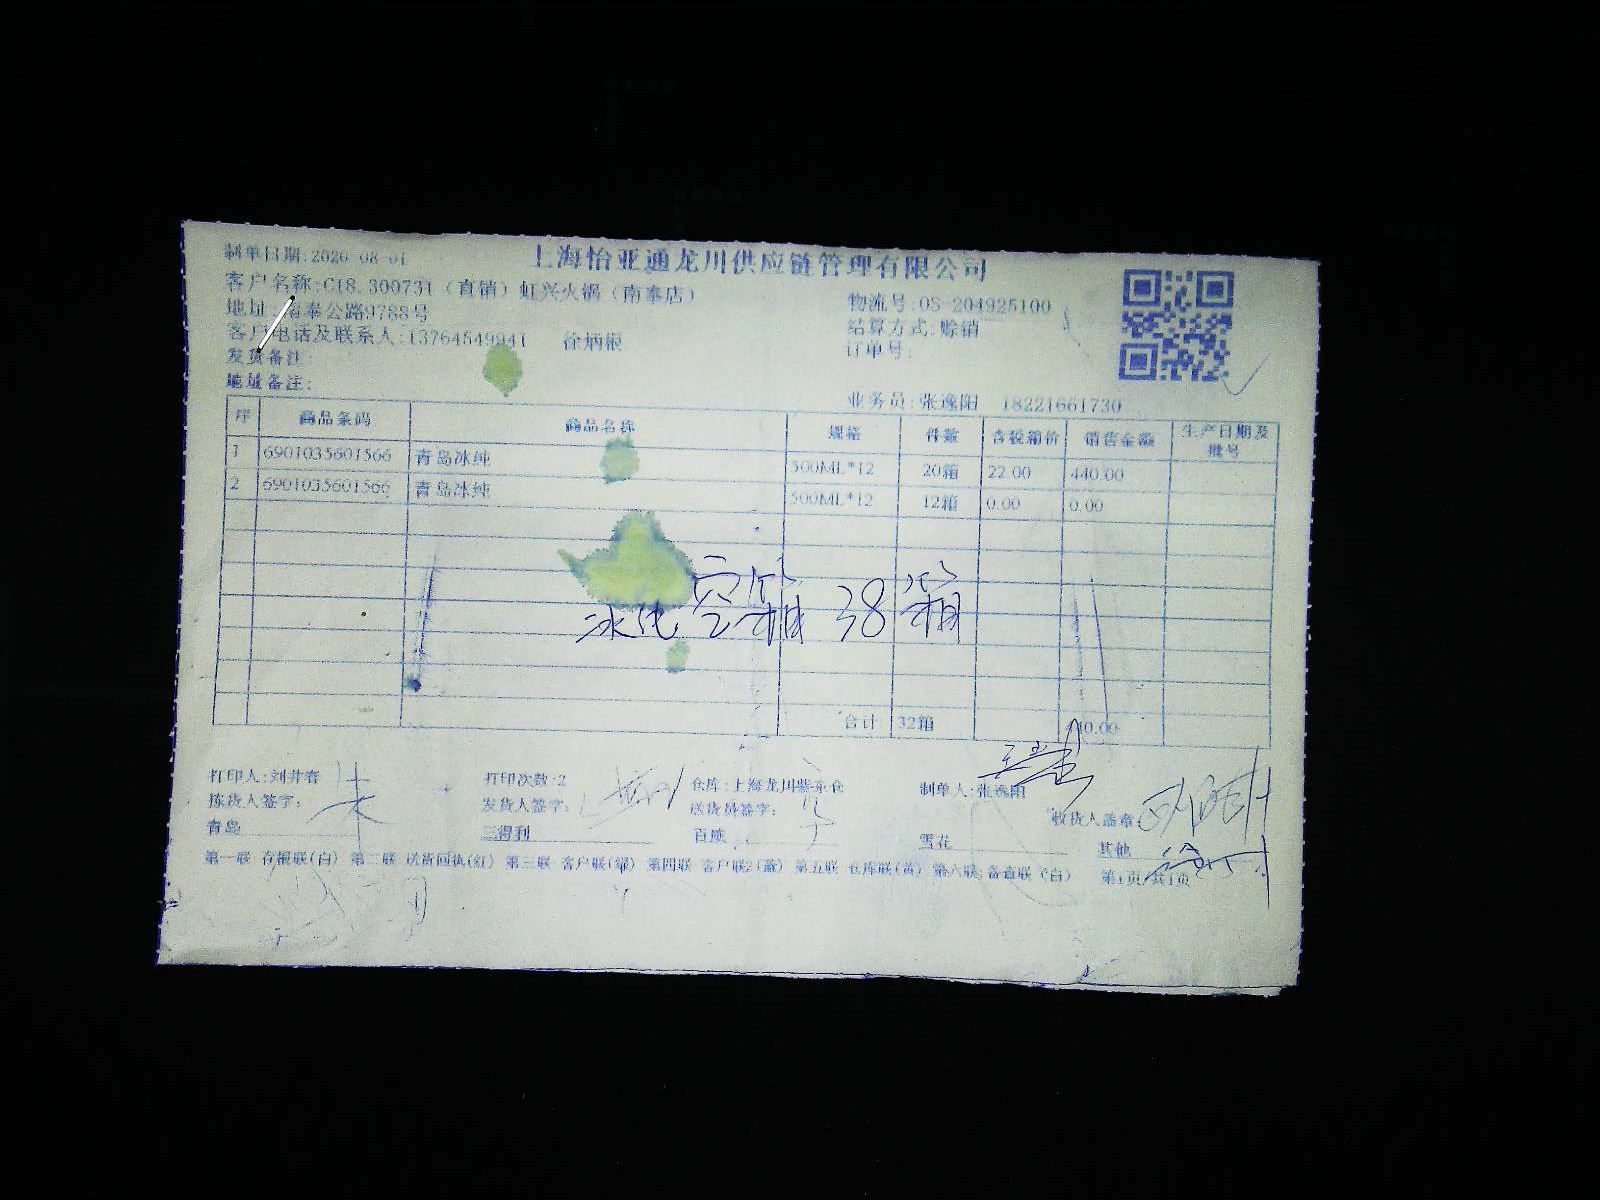 上海怡亚通龙川供应链管理有限公司
制单日期:2020-08-01
客户名称:C18.300731（直销）虹兴火锅（南奉店）
物流号:OS-204925100
地址:南奉公路9788号
结算方式:赊销
客户电话及联系人:13764549941 徐炳银
订单号:
发货备注:
地址备注:
业务员:张逸阳 18221661730
序 商品条码 商品名称 规格 件数 含税箱价 销售金额 生产日期及批号
1 6901035601566 青岛冰纯 500ML*12 20箱 22.00 440.00
2 6901035601566 青岛冰纯 500ML*12 12箱 0.00 0.00
冰纯空箱38箱
合计 32箱 440.00
打印人:刘井春 打印次数:2 仓库:上海龙川紫东仓 制单人:张逸阳
拣货人签字: 朱 发货人签字: 送货员签字: 收货人盖章:
青岛 三得利 百威 雪花 其他
第一联 存根联(白) 第二联 送货回执(红) 第三联 客户联(绿) 第四联 客户联2(蓝) 第五联 仓库联(黄) 第六联:备查联(白) 第1页/共1页